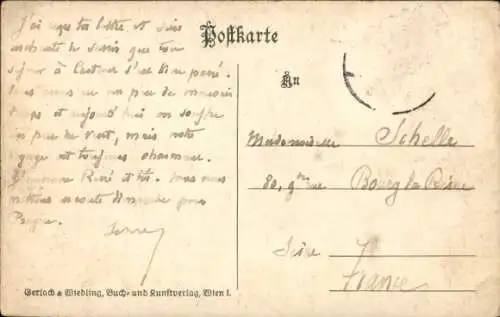 J'ai reçu ta lettre et suis
enchantée de savoir que ton
séjour à s'est bien passé.
Nous avons eu un peu de mauvais
temps et aujourd'hui on souffre
un peu de vent, mais notre
voyage est toujours charmant.
René et toi. Nous nous
mettons en route pour
Prague.
Postkarte
An
Mademoiselle Schelle
80, gde rue Bourg la Reine
Seine
France
Gerlach & Wiedling, Buch- und Kunstverlag, Wien I.